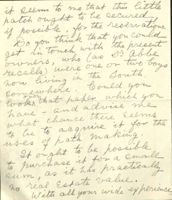 it seems to me that this little
patch ought to be secured
if possible, for the restoration
Do you think that you could
get in touch with the present
owners, who (as I
recall) were one or two boys
now living in the South
somewhere. Could you
look that paper which you
have and advise me
what chance there seems
to be to acquire it for the
uses of path making.
It ought to be possible
to purchase it for a small
sum, as it has practically
no real estate value.
With all your wide experience